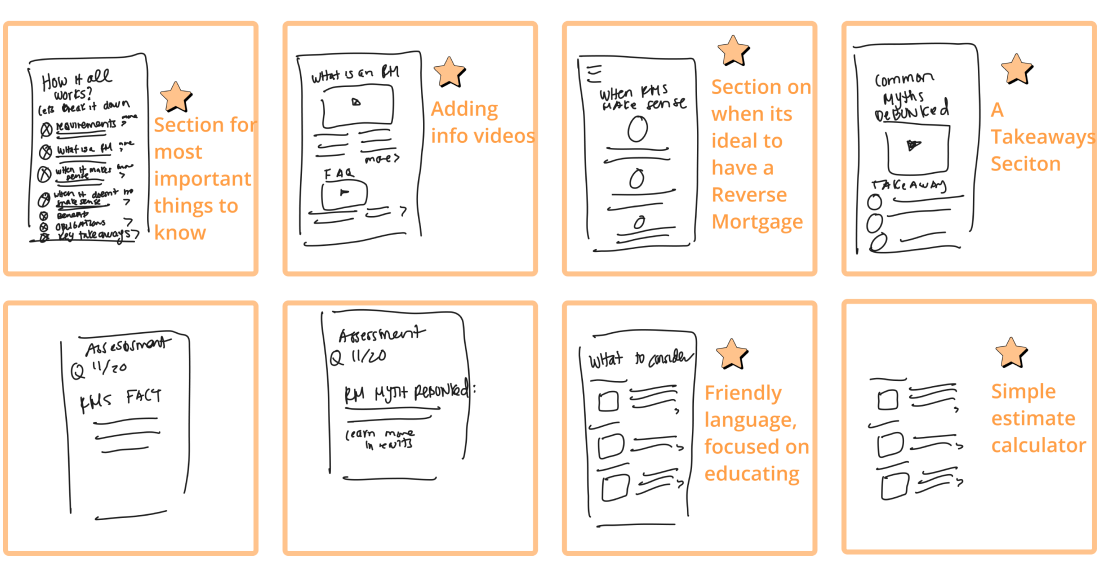 How it all
works?
Lets break it down
requirements more
What is a RM more
when it makes more
sense
when it doesn't mo
make sense
Benefits
OBLIGATIONS
key takeaways
Section for
most
important
things to
know
What is an RM
more >
FAQ
Adding
info videos
WHEN RMS
MAKE SENSE
Section on
when its
ideal to
have a
Reverse
Mortgage
Common
Myths
DEBUNKED
TAKEAWAY
A
Takeaways
Seciton
Assessment
Q 11/20
RMS FACT
Assessment
Q 11/20
RM MYTH DEBONKED:
learn more
in results
What to consider
Friendly
language,
focused on
educating
Simple
estimate
calculator